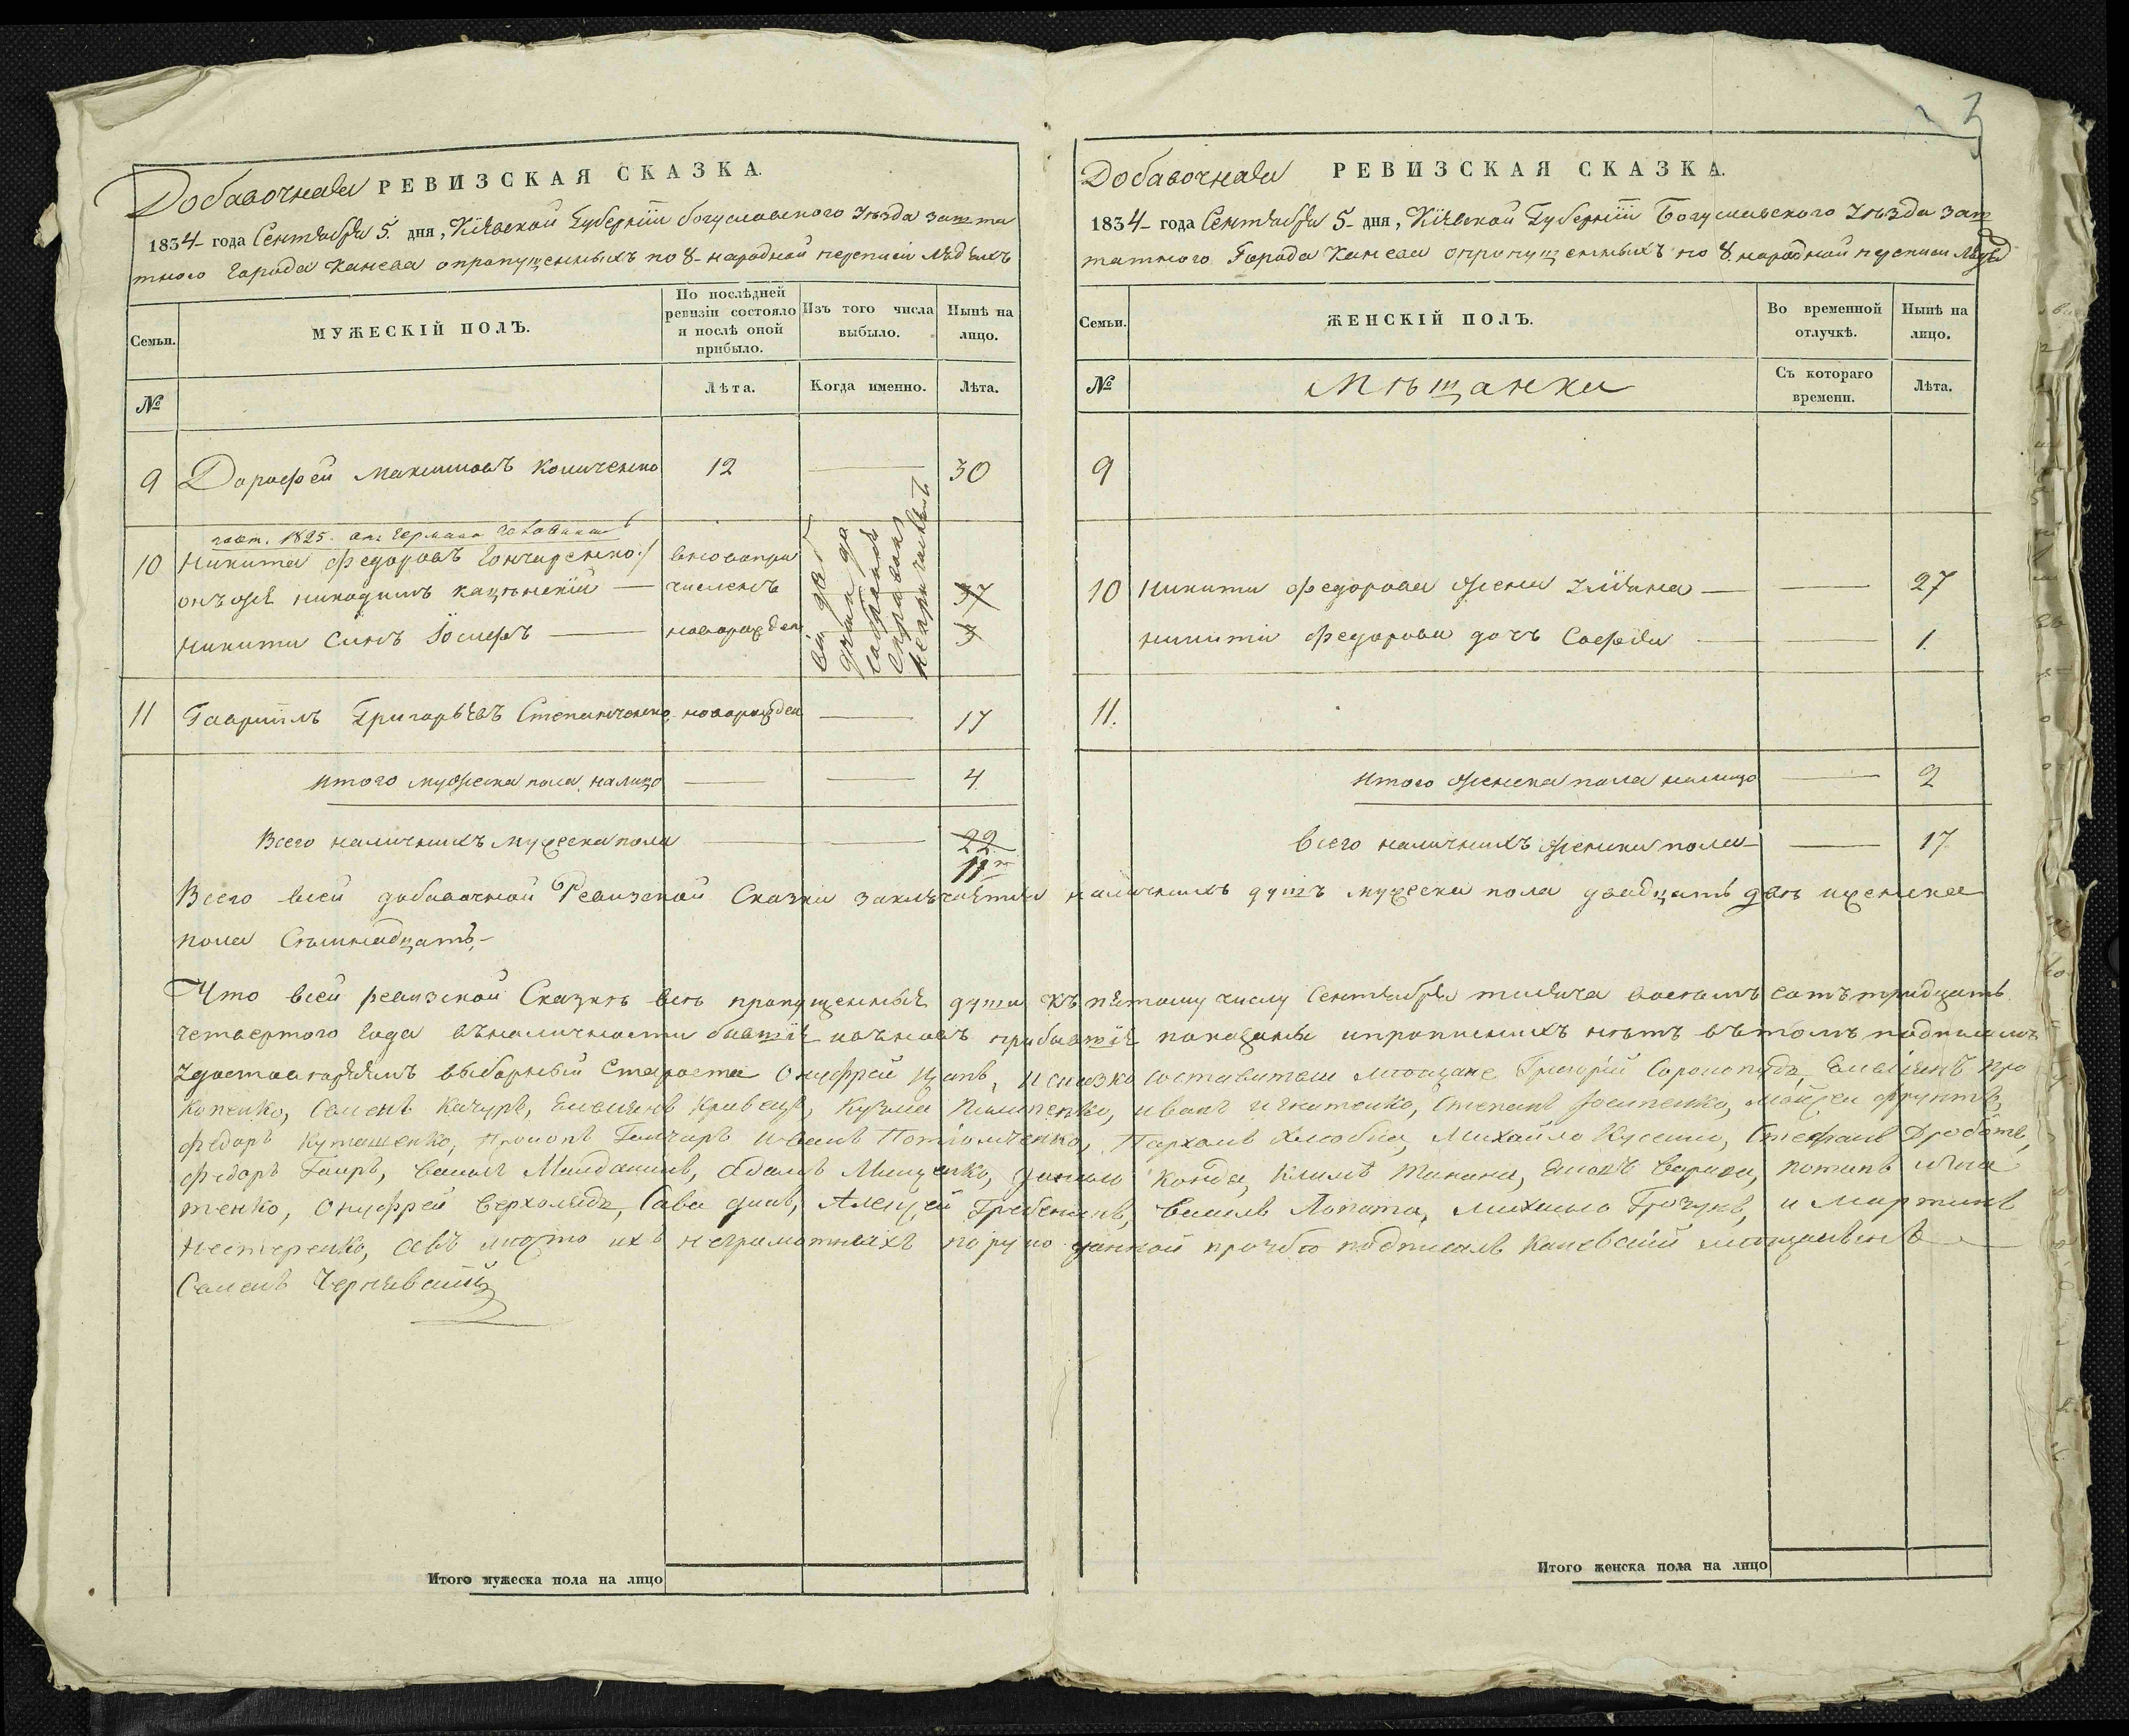 3
Добавочная РЕВИЗСКАЯ СКАЗКА.
1834 года Сентября 5. дня, Кіевской Губерніи богуславского Уезда зашта
тного Города Канева опропущенныхъ по 8-народной переписи людяхъ
Семьи.
МУЖЕСКІЙ ПОЛЪ.
По послѣдней ревизіи состояло и послѣ оной прибыло.
Изъ того числа выбыло.
Нынѣ на лицо.
№
Лѣта.
Когда именно.
Лѣта.
9 Дорофей Максимовъ Количенко 12 — 30
1825.
10 Никита Федоровъ Гончаренко вновопри
онъ же никодимъ — численъ 37
Никиты Синъ Іосифъ — новорожден 3
11 Гавриілъ Григорьевъ Степанченко новорожден — 17
Итого мужеска пола налицо — — 4.
Всего наличнихъ мужеска пола — — 22.
11
Добавочная РЕВИЗСКАЯ СКАЗКА.
1834 года Сентября 5 дня, Кіевской Губерніи Богуславского Уѣзда заш
татного Города Канева опропущенныхъ по 8 народной переписи людяхъ
Семьи.
ЖЕНСКІЙ ПОЛЪ.
Во временной отлучкѣ.
Нынѣ на лицо.
№
Мѣщанки
Съ котораго времени.
Лѣта.
9
10 Никиты Федорова жена Уліана — — 27
Никиты Федорова дочъ Софія — — 1.
11.
Итого женска пола налицо — 2
Всего наличнихъ женска пола — 17
Всего всей добавочной Ревизской Сказки заключается наличнихъ душъ мужеска пола двадцать две иженска
пола Семнадцать,—
Что всей ревизской Сказкѣ всѣ пропущенныя души къ пятому числу Сентября тисяча восемъ сотъ тридцать
четвертого года въналичности бывшія ивъновъ прибывшія показаны ипрописнихъ нѣтъ вътомъ подписомъ
удостовѣряемъ выборный Староста Онуфрей Цапъ, Исказко составители мещане Григорій Сорокопудъ, Емельянъ Про
копенко, Семенъ Качуръ, Емельянъ Кравецъ, Кузьма Пилипенко, Иванъ Игнатенко, Степанъ Росипенко, Мойсей Фрунтъ,
Федоръ Куташенко, Прокопъ Гончаръ Иванъ Потіомченко, Пархомъ Хлюбка, Михайло Кусенко, Стефанъ Дроботъ,
Федоръ Гаиръ, Василь Майданикъ, Адамъ Мищенко, Конда, Климъ Танана, Варава, Потапъ Игна
тенко, Онуфрей Верхолядъ, Сава Алексей Гребеникъ, Василь Лопата, Михайло Грозукъ, и Мартинъ
Нестеренко, авъ место ихъ неграмотнихъ порукоданной прозбѣ подписалъ Каневскій мещанинъ
Семенъ Чернявскій
Итого мужеска пола на лицо
Итого женска пола на лицо